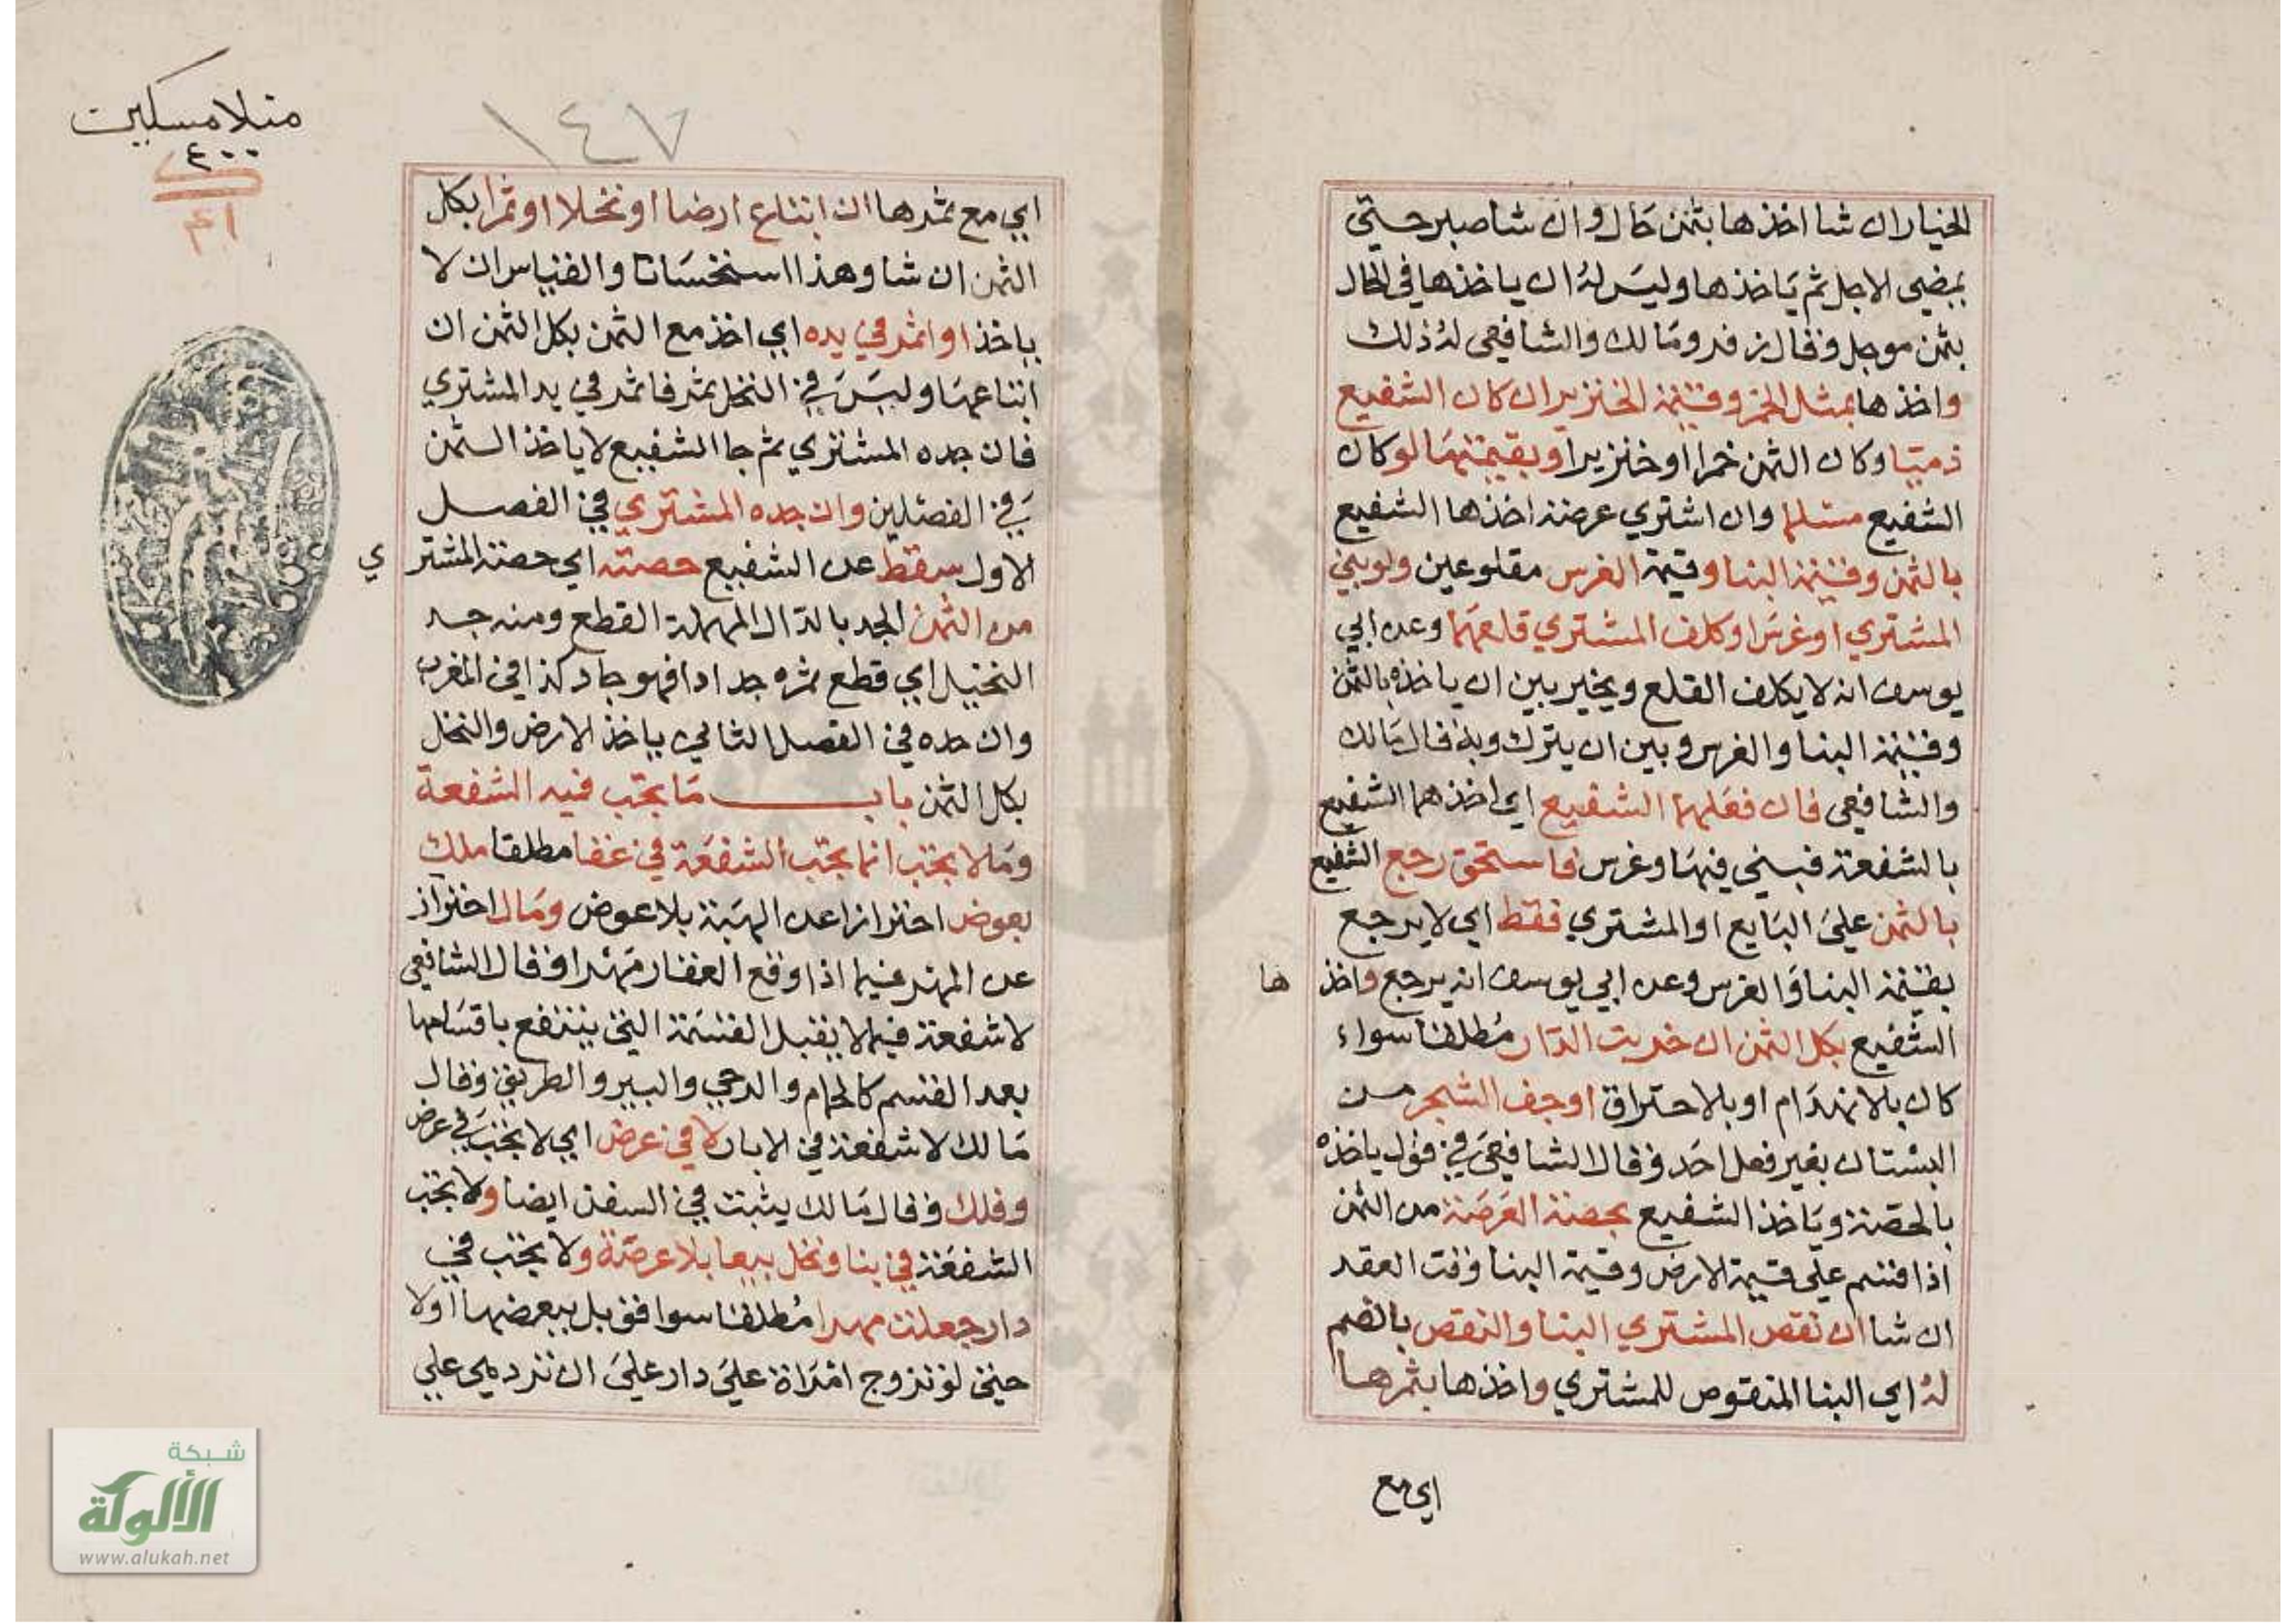 الخيار ان شا اخذها بثمن حال وان شا صبر حتي
يمضي الاجل ثم ياخذها وليس له ان ياخذها في الحال
بثمن موجل وقال زفر ومالك والشافعي له ذلك
واخذها بمثل الخمر وقيمة الخنزير ان كان الشفيع
ذميا وكان الثمن خمرا او خنزيرا وبقيمتهما لو كان
الشفيع مسلما وان اشتري عرصة اخذها الشفيع
بالثمن وقيمة البنا وقيمة الغرس مقلوعين ولو بني
المشتري او غرس او كلف المشتري قلعهما وعن ابي
يوسف انه لا يكلف القلع ويخير بين ان ياخذه بالثمن
وقيمة البنا والغرس وبين ان يترك وبه قال مالك
والشافعي فان فعلهما الشفيع اي اخذهما الشفيع
بالشفعة فبني فيها وغرس فاستحق رجع الشفيع
بالثمن علي البايع او المشتري فقط اي لا يرجع
بقيمة البنا والغرس وعن ابي يوسف انه يرجع واخذ ها
الشفيع بكل الثمن ان خربت الدار مطلقا سواء
كان بلا انهدام او بلا احتراق او جف الشجر من
البستان بغير فعل احد وقال الشافعي في قول ياخذه
بالحصة وياخذ الشفيع بحصة العرصة من الثمن
اذا قسم علي قيمة الارض وقيمة البنا وقت العقد
ان شا ان نقض المشتري البنا والنقض بالضم
له اي البنا المنقوض للمشتري واخذها بثمرها
اي مع
منلا مسكين
٤٠٠
١٤٧
اي مع ثمرها ان ابتاع ارضا او نخلا او ثمرا بكل
الثمن ان شا وهذا استحسانا والقياس ان لا
ياخذ او اثمر في يده اي اخذ مع الثمن بكل الثمن ان
ابتاعها وليس في النخل ثمر فاثمر في يد المشتري
فان جده المشتري ثم جا الشفيع لا ياخذ الثمن
في الفصلين وان جده المشتري في الفصل
الاول سقط عن الشفيع حصته اي حصة المشتري
من الثمن الجد بالدال المهملة القطع ومنه جد
النخيل اي قطع ثمره جدادا فهو جاد كذا في المغرب
وان جده في الفصل الثاني ياخذ الارض والنخل
بكل الثمن باب ما يجب فيه الشفعة
وما لا يجب انما يجب الشفعة في عقا مطلقا ملك
بعوض احترازا عن الهبة بلا عوض ومال احتراز
عن المهر فيما اذا وقع العقار مهرا وقال الشافعي
لا شفعة فيما لا يقبل القسمة التي ينتفع باقسامها
بعد القسم كالحمام والرحي والبير والطريق وقال
مالك لا شفعة في الابار لا في عرض اي لا يجب في عرض
وفلك وقال مالك يثبت في السفن ايضا ولا يجب
الشفعة في بنا ونخل بيعا بلا عرصة ولا يجب في
دار جعلت مهرا مطلقا سوا قوبل ببعضها اولا
حتي لو تزوج امراة علي دار علي ان ترد هي علي
شبكة
الألوكة
www.alukah.net